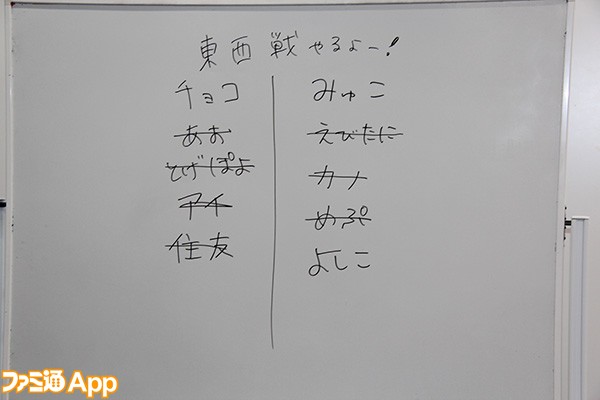 東西戦やるよー!
チョコ
あお
とげぽよ
アイ
住友
みゅこ
えびたに
カノ
めぷ
よしこ
ファミ通App